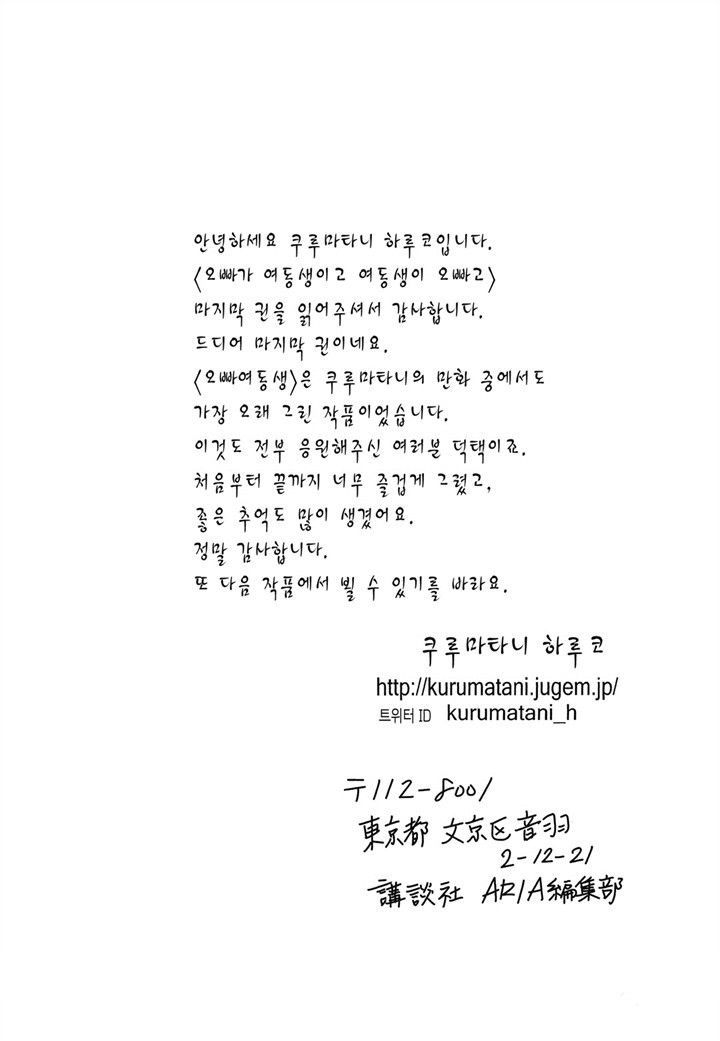 안녕하세요 쿠루마타니 하루코입니다.
〈오빠가 여동생이고 여동생이 오빠고〉
마지막 권을 읽어주셔서 감사합니다.
드디어 마지막 권이네요.
〈오빠여동생〉은 쿠루마타니의 만화 중에서도
가장 오래 그린 작품이었습니다.
이것도 전부 응원해주신 여러분 덕택이죠.
처음부터 끝까지 너무 즐겁게 그렸고,
좋은 추억도 많이 생겼어요.
정말 감사합니다.
또 다음 작품에서 뵐 수 있기를 바라요.
쿠루마타니 하루코
http://kurumatani.jugem.jp/
트위터 ID kurumatani_h
〒112-8001
東京都 文京区音羽
2-12-21
講談社 ARIA編集部